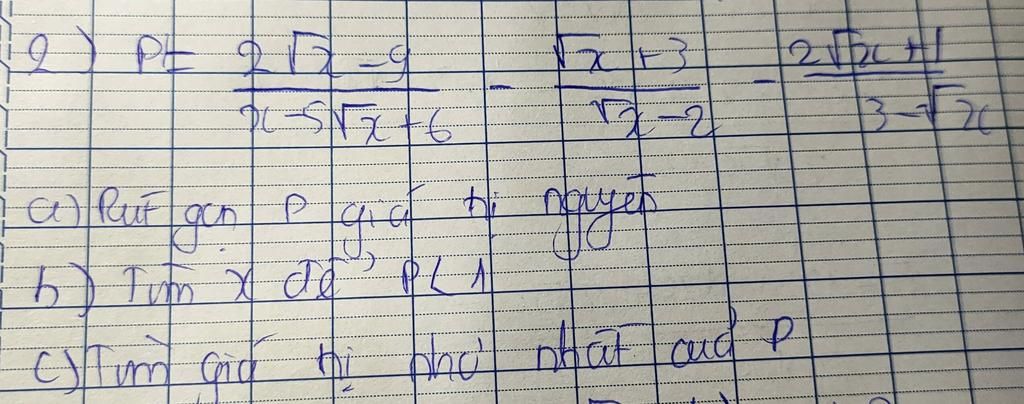 2) P = \frac{2\sqrt{x} - 9}{x - 5\sqrt{x} + 6} - \frac{\sqrt{x} + 3}{\sqrt{x} - 2} - \frac{2\sqrt{x} + 1}{3 - \sqrt{x}}
a) Rút gọn P giá trị nguyên
b) Tìm x để P < 1
c) Tìm giá trị nhỏ nhất của P